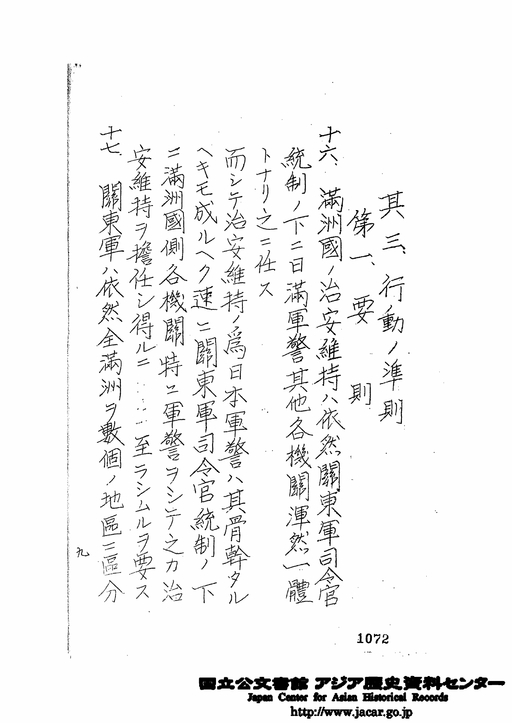 其三、行動ノ準則
第一、要則
十六、滿洲國ノ治安維持ハ依然關東軍司令官
統制ノ下ニ日滿軍警其他各機關渾然一體
トナリ之ニ任ス
而シテ治安維持ノ爲日本軍警ハ其骨幹タル
ヘキモ成ルヘク速ニ關東軍司令官統制ノ下
ニ滿洲國側各機關特ニ軍警ヲシテ之カ治
安維持ヲ擔任シ得ルニ……至ラシムルヲ要ス
十七、關東軍ハ依然全滿洲ヲ數個ノ地區ニ區分
九
1072
国立公文書館 アジア歴史資料センター
Japan Center for Asian Historical Records
http://www.jacar.go.jp